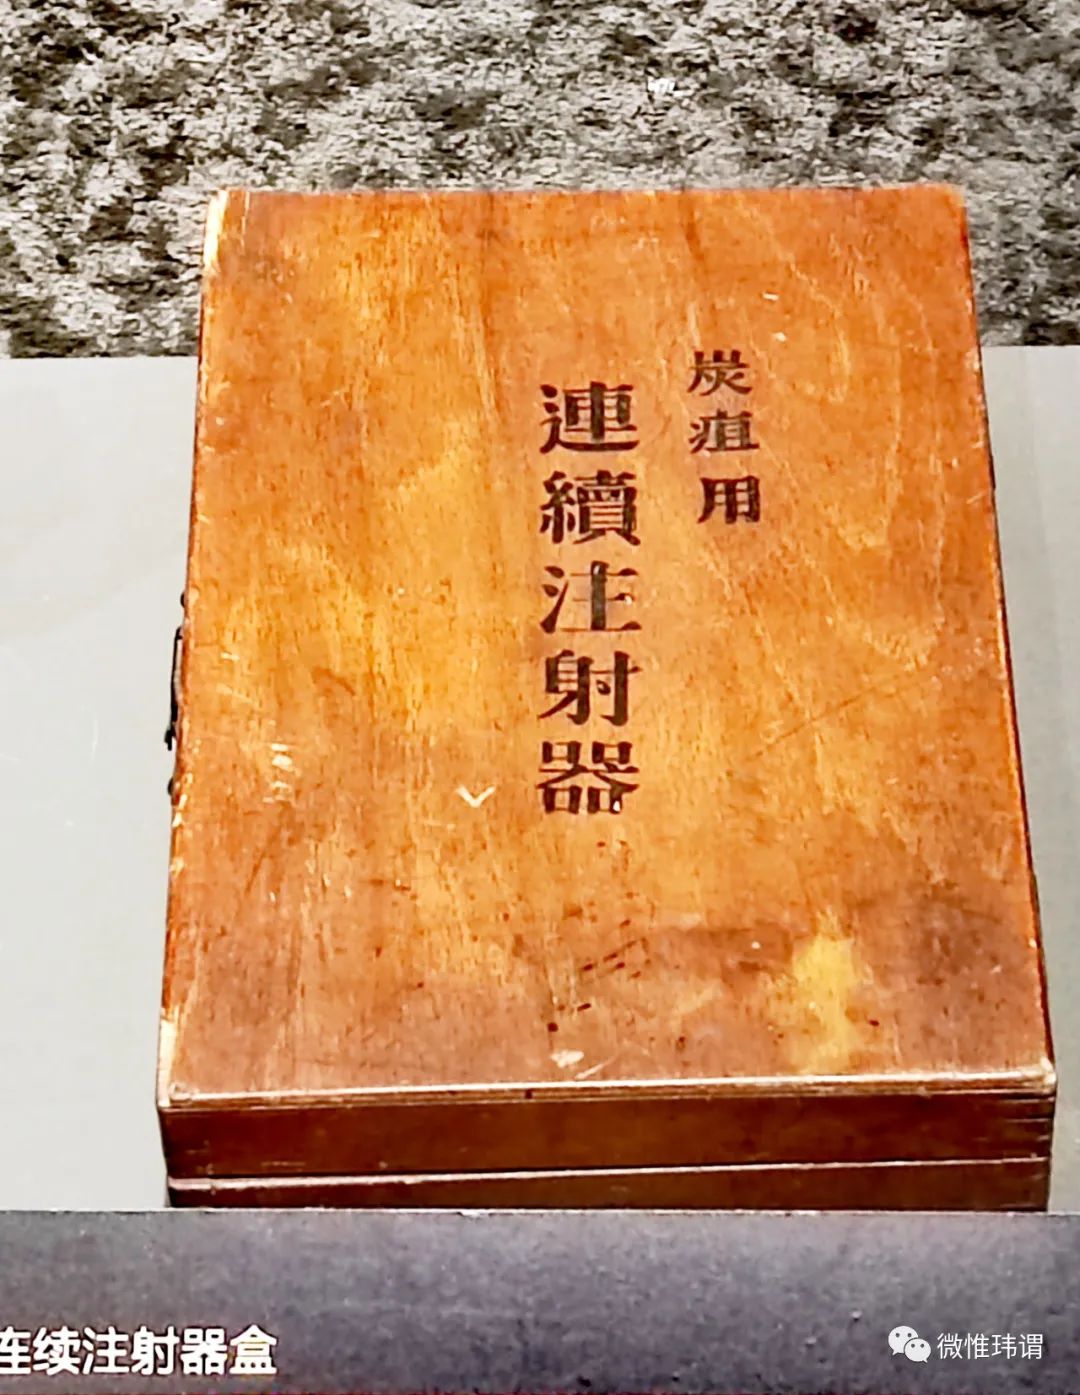 炭疽用
連續注射器
连续注射器盒
微惟玮谓